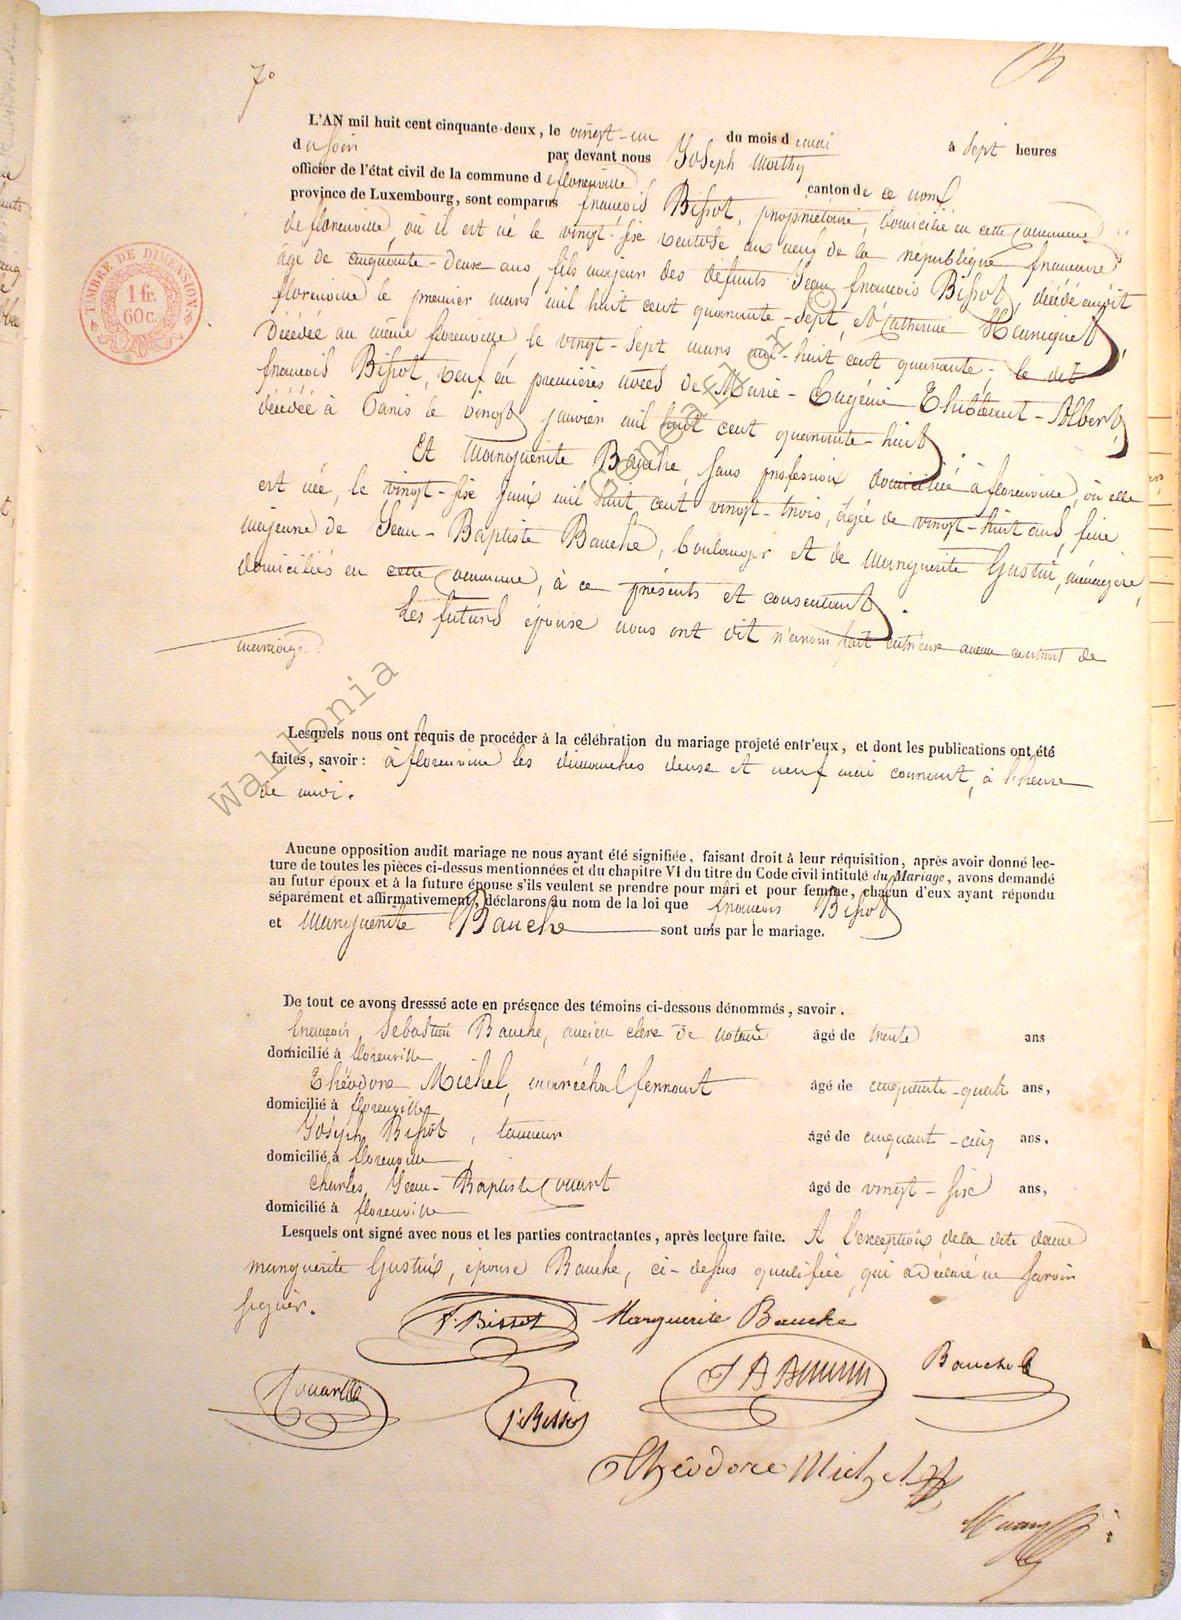 7°
L'AN mil huit cent cinquante-deux, le vingt-un du mois d e mai à sept heures
d u soir par devant nous Joseph Mathy
officier de l'état civil de la commune d e florenville canton de ce nom
province de Luxembourg, sont comparus françois Bissot, propriétaire, domicilié en cette commune
de florenville, où il est né le vingt-six ventose an neuf de la république française
âgé de cinquante-deux ans, fils majeur des défunts Jean françois Bissot, décédé audit
florenville le premier mars mil huit cent quarante-sept, et Catherine
Décédée au même florenville le vingt-sept mars mil-huit cent quarante, le dit
françois Bissot, veuf en premières noces de Marie-Eugénie Albert,
décédée à Paris le vingt janvier mil huit cent quarante-huit
Et Marguerite Bauche, sans profession domiciliée à florenville, où elle
est née, le vingt-six juin mil huit cent vingt-trois, âgée de vingt-huit ans, fille
majeure de Jean-Baptiste Bauche, boulanger et de Marguerite Gustin, ménagère,
domiciliés en cette commune, à ce présents et consentant.
Les futurs époux nous ont dit n'avoir fait entr'eux aucun contrat de
mariage.
Lesquels nous ont requis de procéder à la célébration du mariage projeté entr'eux, et dont les publications ont été
faites, savoir: à florenville les dimanches deux et neuf mai courant, à l'heure
de midi.
Aucune opposition audit mariage ne nous ayant été signifiée, faisant droit à leur réquisition, après avoir donné lec-
ture de toutes les pièces ci-dessus mentionnées et du chapitre VI du titre du Code civil intitulé du Mariage, avons demandé
au futur époux et à la future épouse s'ils veulent se prendre pour mari et pour femme, chacun d'eux ayant répondu
séparément et affirmativement, déclarons au nom de la loi que françois Bissot
et Marguerite Bauche sont unis par le mariage.
De tout ce avons dresssé acte en présence des témoins ci-dessous dénommés, savoir.
françois, Sebastien Bauche, ancien clerc de notaire âgé de trente ans
domicilié à florenville
Théodore Michel, maréchal ferrant âgé de cinquante-quatre ans,
domicilié à florenville
Joseph Bissot, tanneur âgé de cinquant-cinq ans.
domicilié à florenville
Charles Jean-Baptiste âgé de vingt-six ans,
domicilié à florenville
Lesquels ont signé avec nous et les parties contractantes, après lecture faite. A l'exception de la dite dame
marguerite Gustin, épouse Bauche, ci-dessus qualifiée, qui a déclaré ne savoir
signer.
F. Bissot Marguerite Bauche
Bauche
J. Bissot
Théodore Michel
TIMBRE DE DIMENSION
1 fr.
60 c.
Wallonia GeneaFlor ©